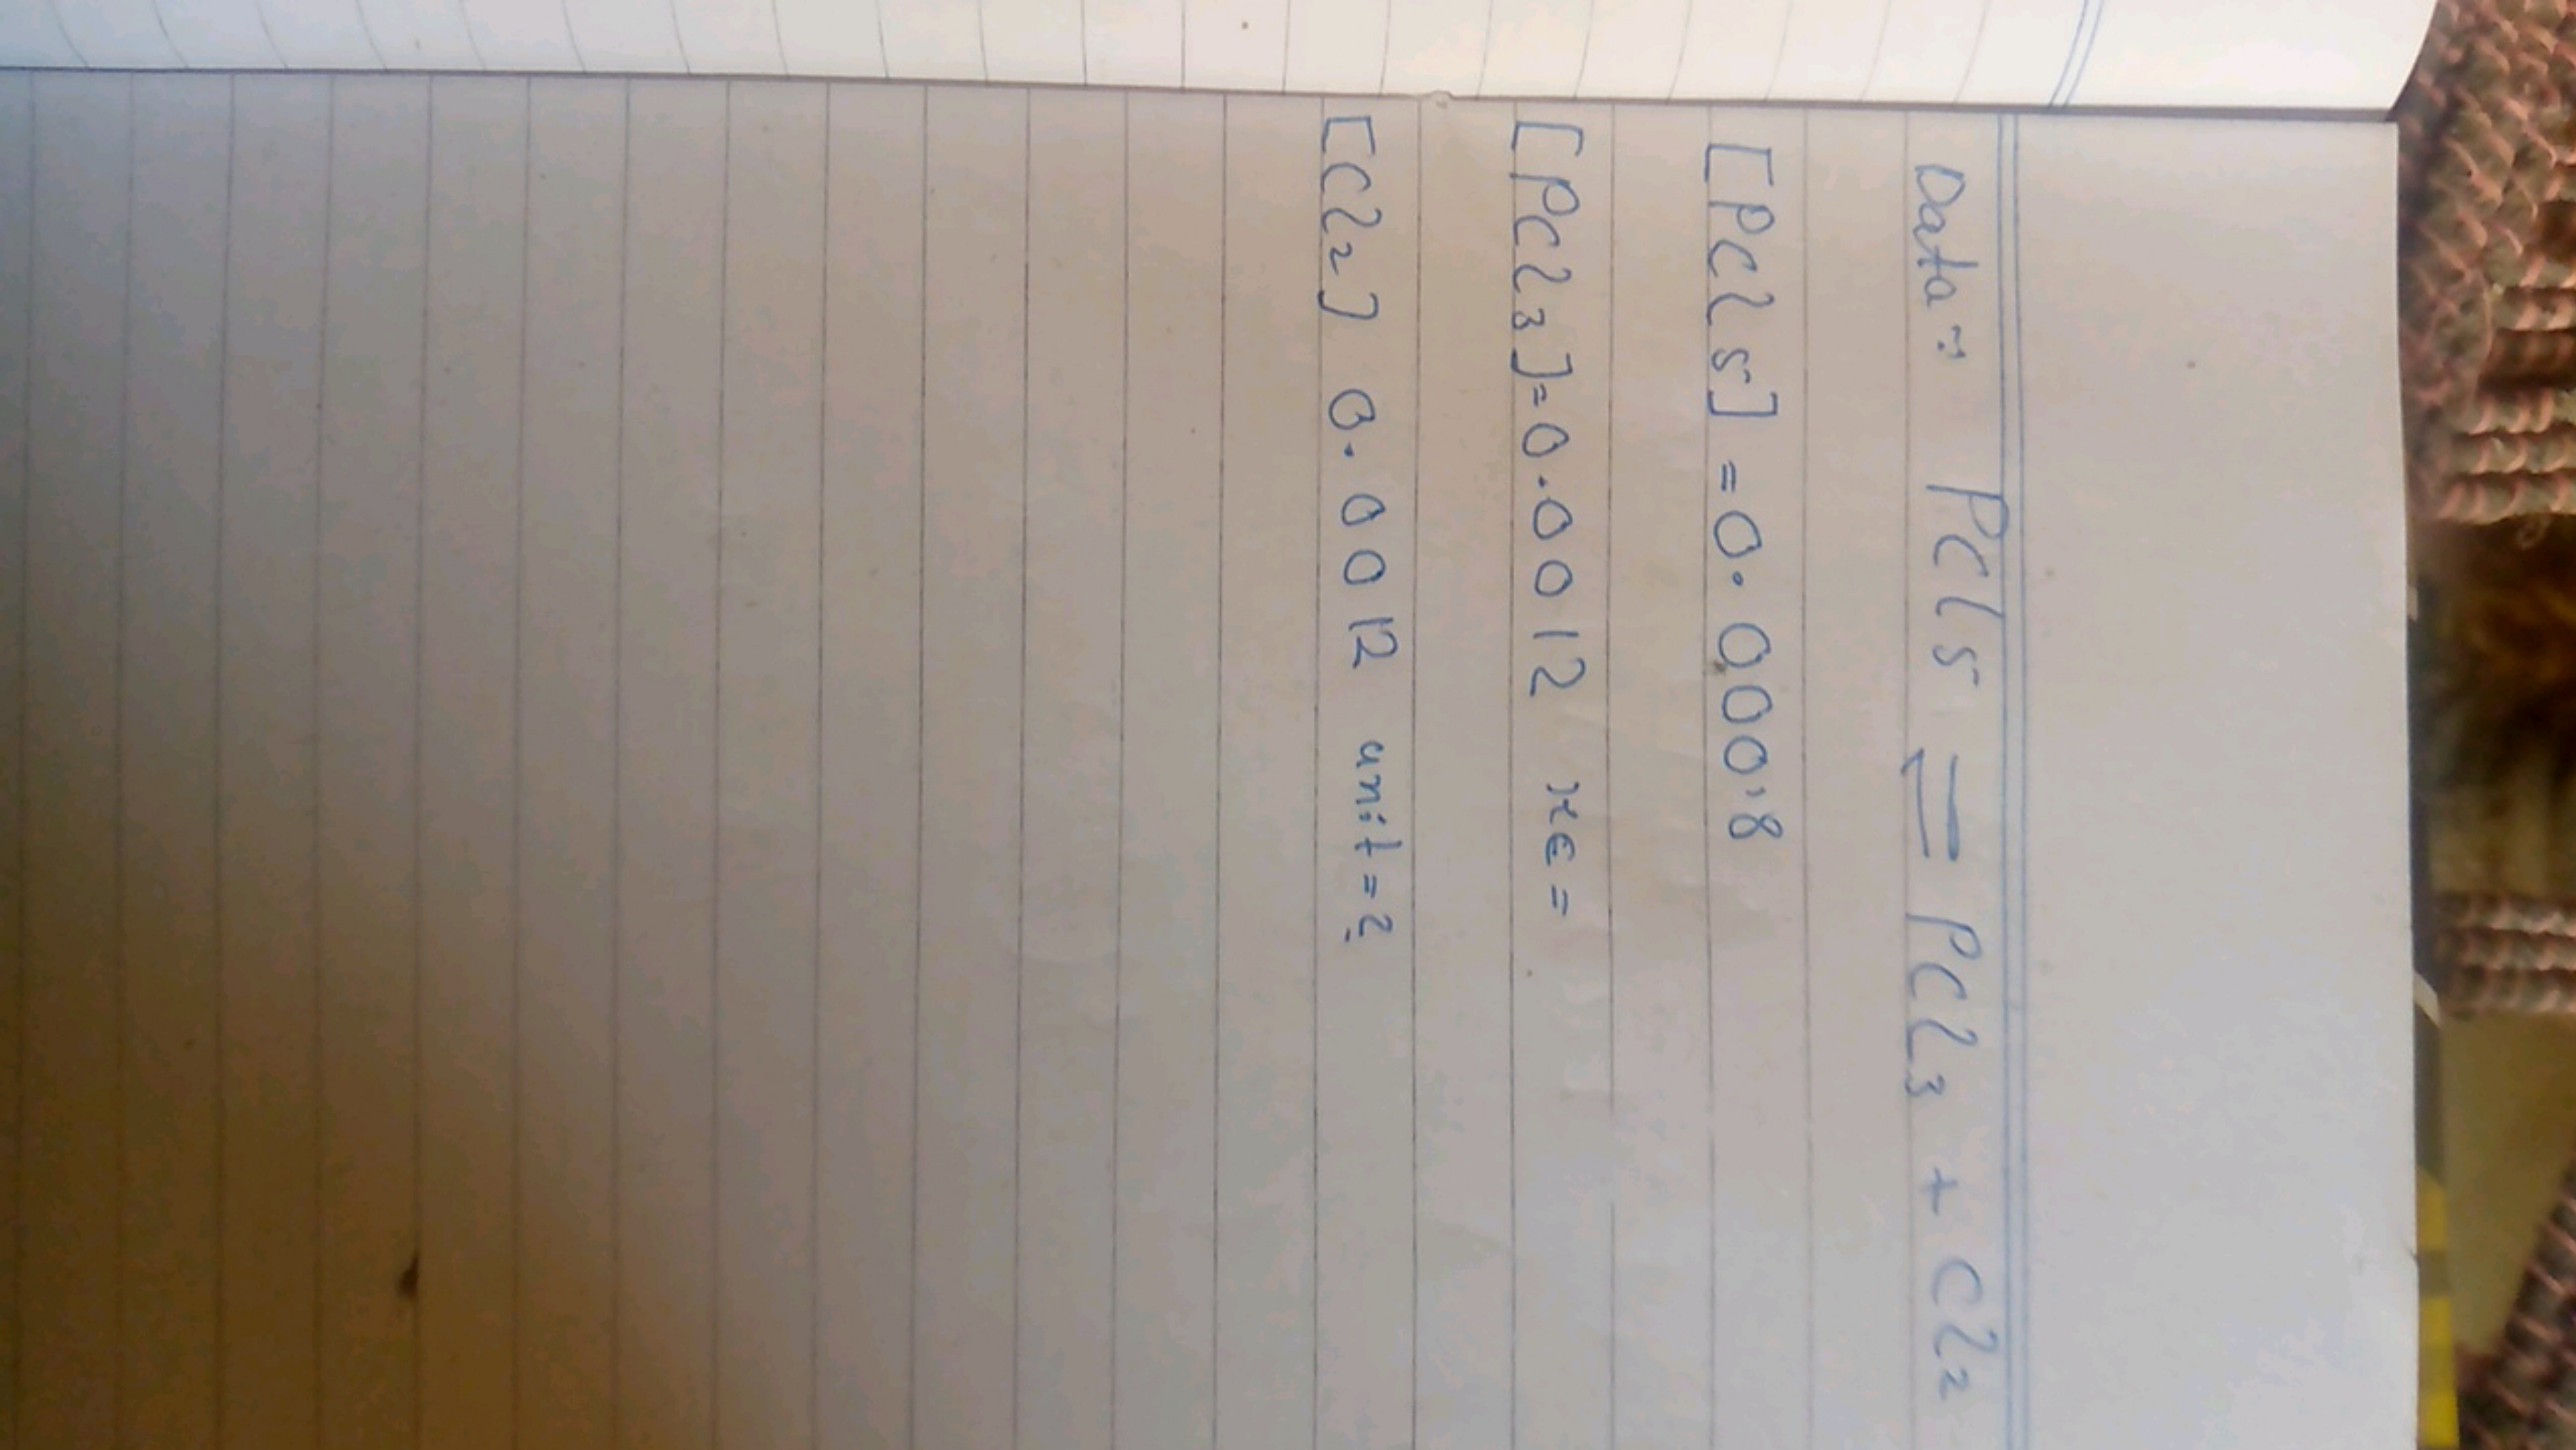 Data:- PCl5 ⇌ PCl3 + Cl2
[PCl5] = 0.0008
[PCl3] = 0.0012 Kc =
[Cl2] 0.0012 unit = ?